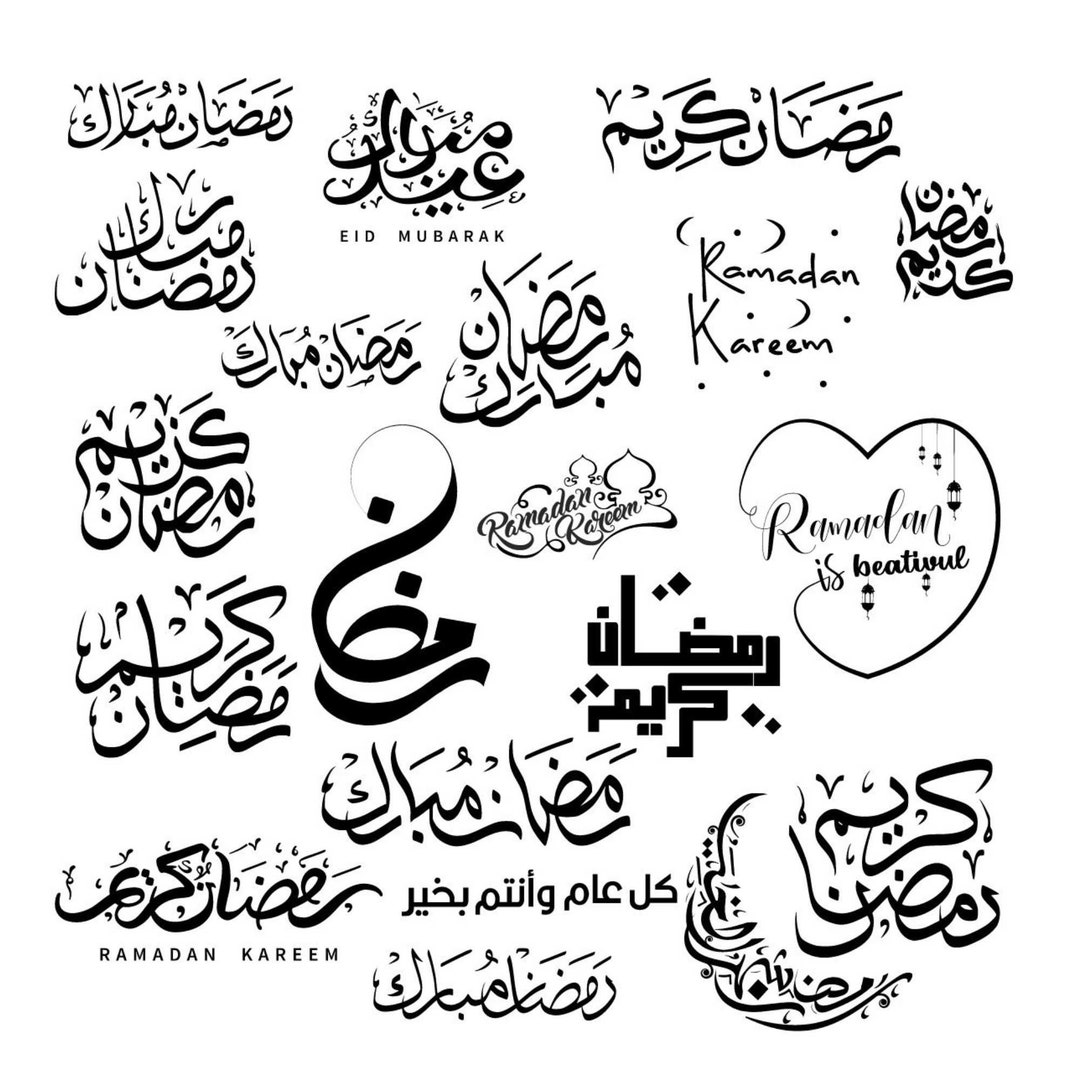 رمضان مبارك
عيد مبارك
EID MUBARAK
رمضان كريم
رمضان
مبارك
رمضان
كريم
Ramadan
Kareem
رمضان مبارك
رمضان
مبارك
كريم
رمضان
رمضان
Ramadan
Kareem
Ramadan
is beativul
كريم
رمضان
رمضان
كريم
رمضان مبارك
كريم
رمضان
رمضان كريم
RAMADAN KAREEM
كل عام وأنتم بخير
رمضان مبارك